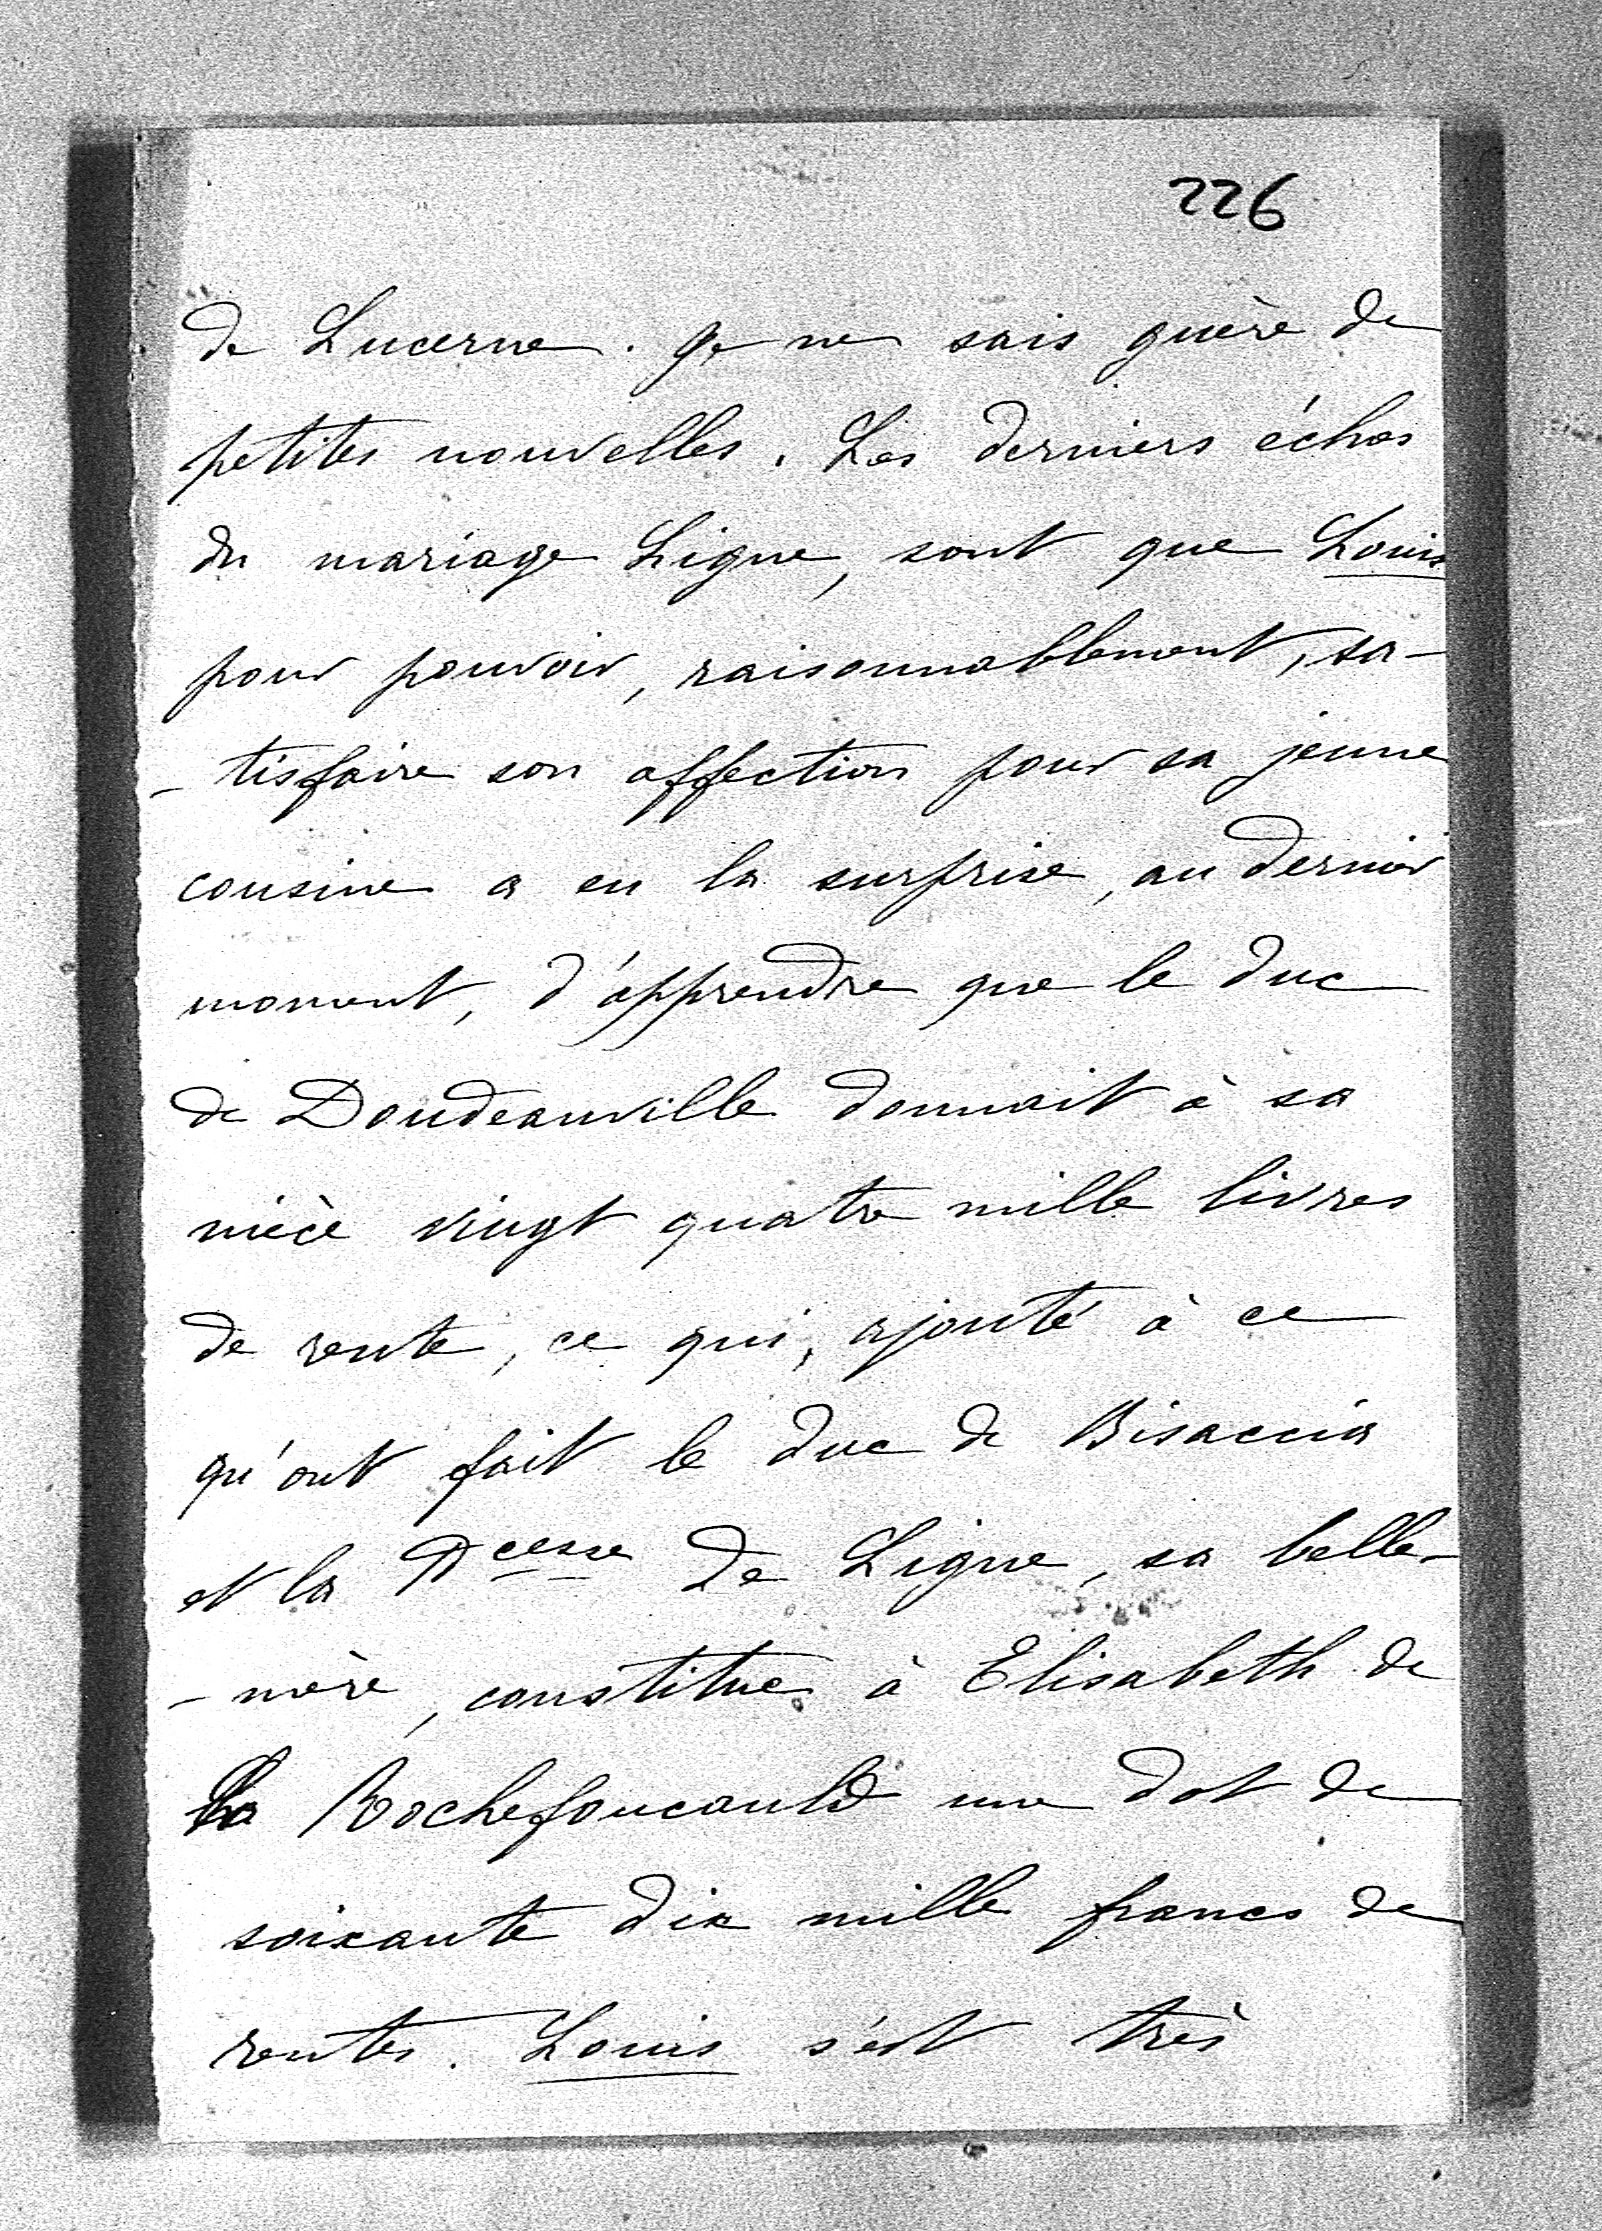 226
de Lucerne. Je ne sais guère de
petites nouvelles. Les derniers échos
du mariage Ligne, sont que Louis
pour pouvoir, raisonnablement, sa-
-tisfaire son affection pour sa jeune
cousine a eu la surprise, au dernier
moment, d'apprendre que le duc
de Doudeauville donnait à sa
nièce vingt quatre mille livres
de rente, ce qui, ajouté à ce
qu'ont fait le duc de Bisaccia
et la Pcesse de Ligne, sa belle-
-mère, constitue à Elisabeth de
la Rochefoucauld une dot de
soixante dix mille francs de
rentes. Louis s'est très